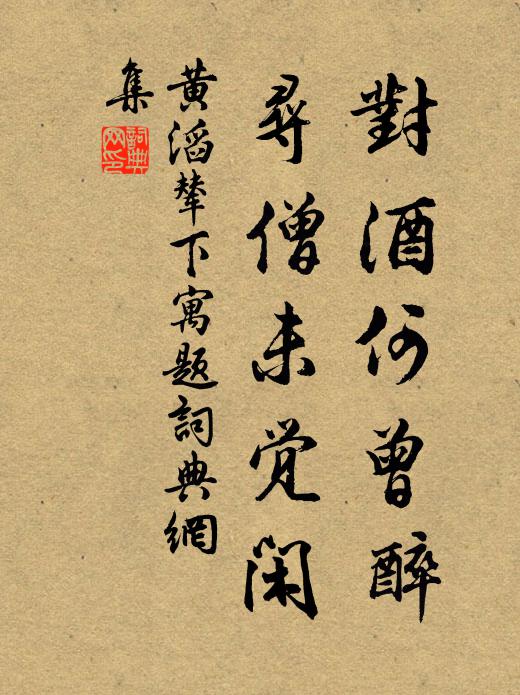 對酒何曾醉
尋僧未覺閑
黃滔輦下寓題詞典網
集
詞典網印